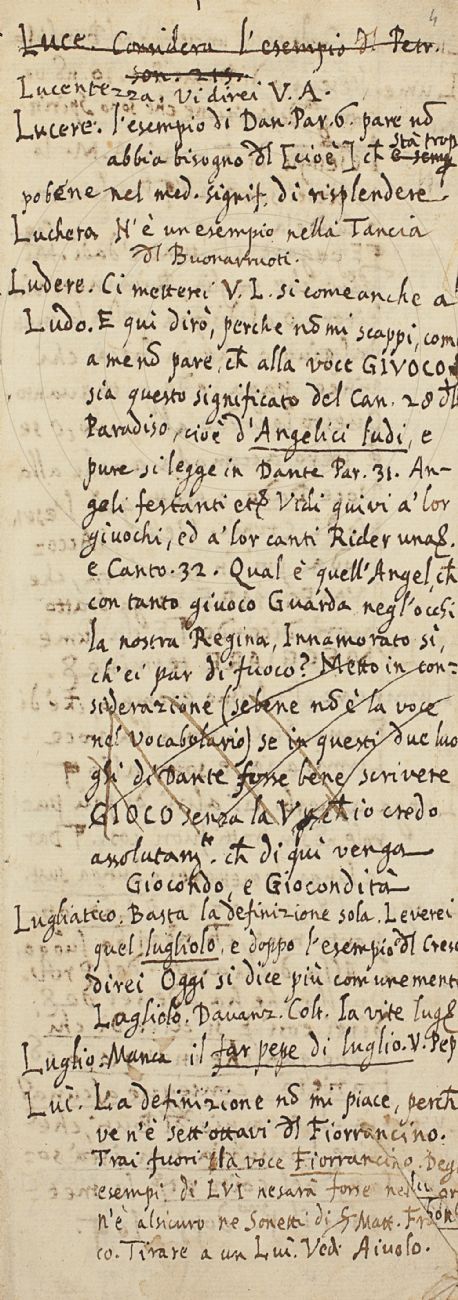 4
Luce. Considera l'esempio dl Petr.
son. 215.
Lucentezza. Vi direi V. A.
Lucere. l'esempio di Dan. Par. 6. pare nō
abbia bisogno dl [cioè,] ch̄ stà trop
pobene nel med. signif. di risplendere.
Luchera N'è un esempio nella Tancia
dl Buonarruoti.
Ludere. Ci metterei V. L. si come anche a
Ludo. E quì dirò, perche nō mi scappi, com
a me nō pare, ch̄ alla voce GIVOCO
sia questo significato del Can. 28 dl
Paradiso, cioè d'Angelici ludi, e
pure si legge in Dante Par. 31. An-
geli festanti etc Vidi quivi a' lor
giuochi, ed a' lor canti Rider una
e Canto. 32. Qual è quell'Angel, ch̄
con tanto giuoco Guarda negl'occhi
la nostra Regina, Innamorato sì,
ch'ei par di fuoco? Metto in con-
siderazione (sebene nō è la voce
nel vocabolario) se in questi due luo
ghi di Dante forse bene scrivere
GIOCO senza la V, ch̄ io credo
assolutam.te ch̄ di quì venga
Giocondo, e Giocondità
Lugliatico. Basta la definizione sola. Leverei
quel lugliolo, e doppo l'esempio dl Cresc
direi Oggi si dice più comunemente
Lugliolo. Davanz. Colt. la vite lug
Luglio. Manca il far pepe di luglio. V. Pep
Luì. La definizione nō mi piace, perch̄
ve n'è sett'ottavi dl Fiorrancino.
Trai fuori la voce Fiorrancino. Deg
esempi di LVI ne sarà forse nel
n'è alsicuro ne Sonetti di S. Matt. Fra
co. Tirare a un Luì. Vedi Aiuolo.